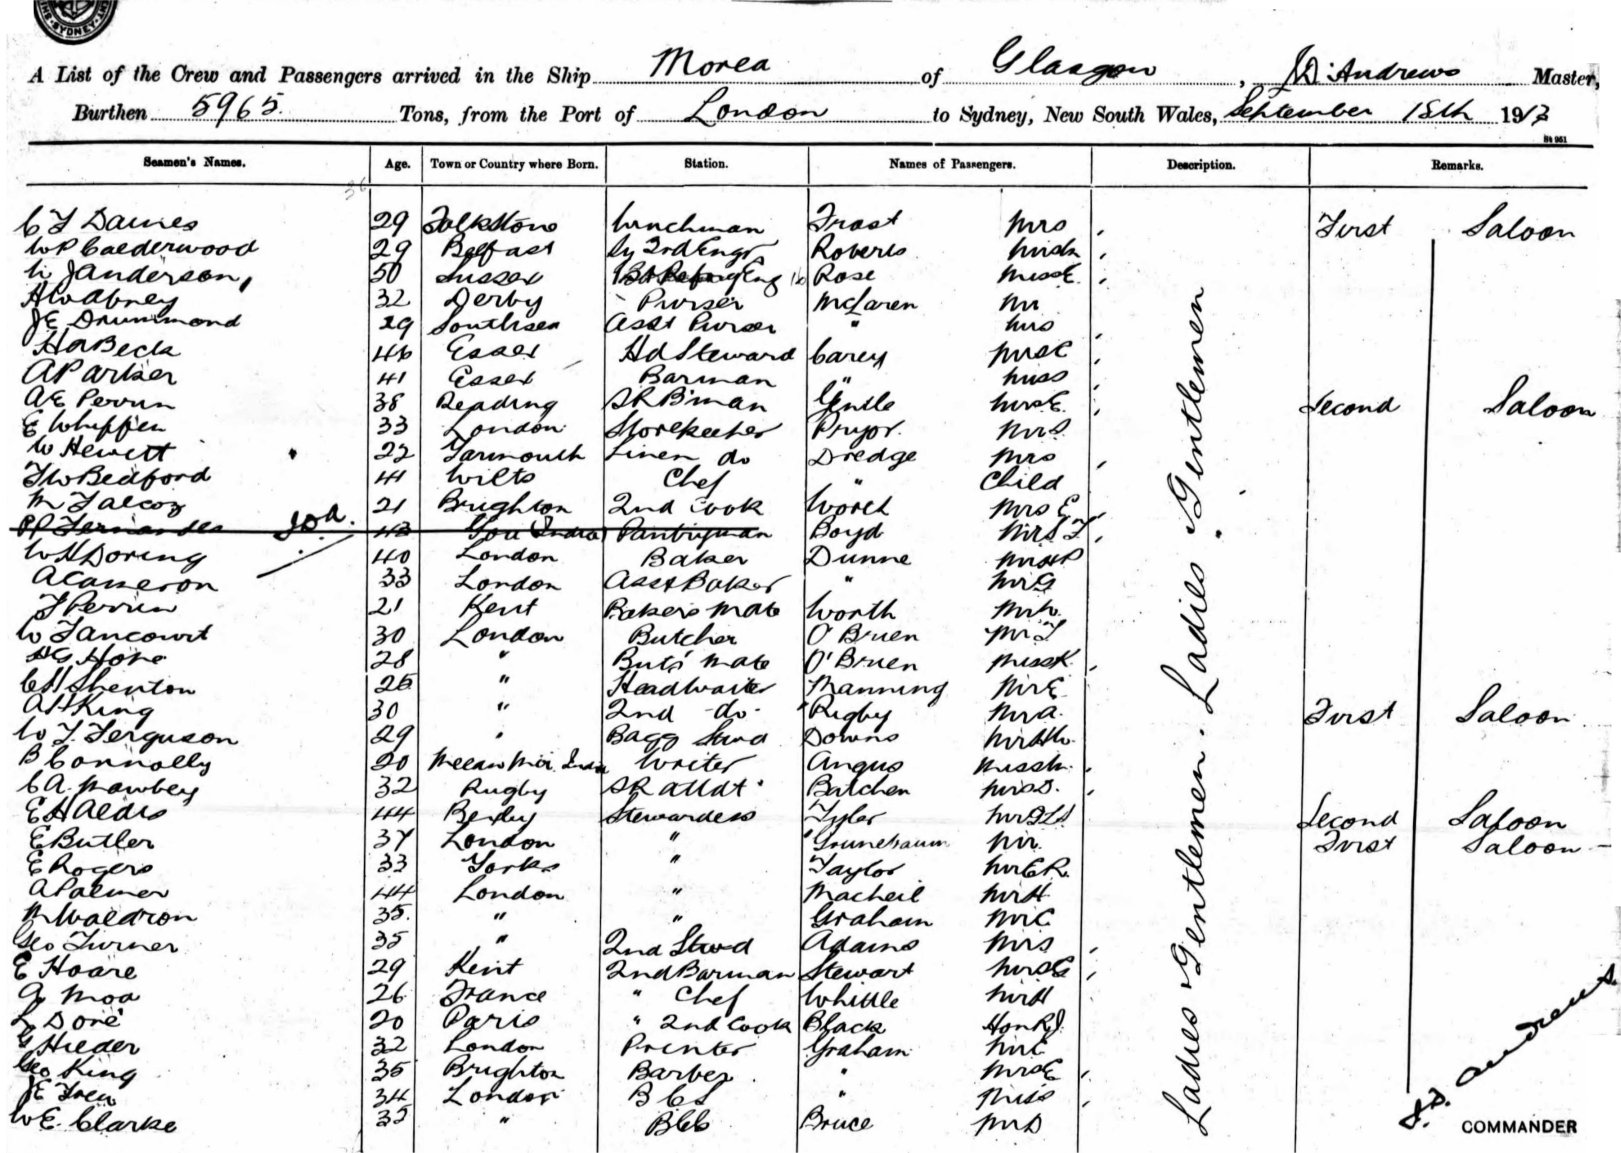 SYDNEY
A List of the Crew and Passengers arrived in the Ship Morea of Glasgow, J.D. Andrews Master,
Burthen 5965. Tons, from the Port of London to Sydney, New South Wales, September 18th 1913
St 961
Seamen's Names. Age. Town or Country where Born. Station. Names of Passengers. Description. Remarks.
C F Davies 29 Folkstone Winchman Frost Mrs First Saloon
W P Calderwood 29 Belfast 2nd Engr Roberts
W J Anderson, 50 Sussex Rose Miss E.
H W Abney 32 Derby Purser McLaren Mr
J E Drummond 29 Southsea Asst Purser " Mrs
H A Beck 46 Essex Hd Steward Carey
A Parker 41 Essex Barman " Miss
A E Perrin 38 Reading S R B'man Gentle Mrs E. Second Saloon
E Whiffin 33 London Storekeeper Pryor. Mr S
W Hewett 22 Yarmouth Linen do Dredge Mrs
F W Bedford 41 Wilts Chef " Child
M Falcoz 21 Brighton 2nd Cook Worth Mrs E
P P Fernandes 43 Goa India Pantryman Boyd Mrs F
W H Doring 40 London Baker Dunne
A Cameron 33 London Asst Baker " Mr G
F Perrin 21 Kent Bakers Mate Worth Mr W.
W Fancourt 30 London Butcher O'Brien Mr T
H G Hone 28 " But's Mate O'Brien Miss K.
C H Shenton 25 " Head Waiter Manning Mr E
A H King 30 " 2nd do Rigby Mr A. First Saloon
W F Ferguson 29 " Bagg Stwd Downs
B Connolly 20 Meean Mir India Writer Angus Miss M.
C A. Mowbey 32 Rugby S R Attdt Batchen Mrs D.
E H Aldis 44 Bexley Stewardess Tyler Second Saloon
E Butler 37 London " Grunebaum Mr. First Saloon
E Rogers 33 Yorks " Taylor Mr C R.
A Palmer 44 London " Macheil Mr H
M Waldron 35. " " Graham Mr C
Geo Turner 35 " 2nd Stwd Adams Mrs
E Hoare 29 Kent 2nd Barman Stewart Mrs G
G Moa 26 France " Chef Whittle Mr H
L Doré 20 Paris " 2nd Cook Black Hon R J.
G Hieder 32 London Printer Graham Mr C
Geo King 35 Brighton Barber " Mrs E
J E Free 34 London B C S " Miss
W E. Clarke 32 " B C C Bruce Mr D
Ladies & Gentlemen. Ladies & Gentlemen
J.D. Andrews
COMMANDER